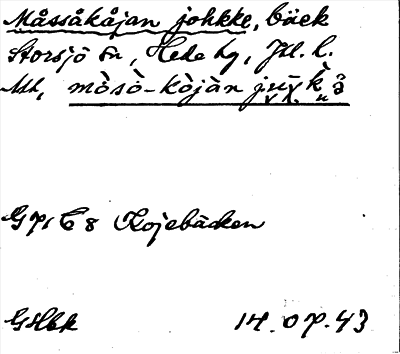 Måssåkåjan johkke, bäck
Storsjö sn, Hede hg, Jtl. l.
Utt, mòsò-kòjàn
G7, C 8 Kojebäcken
GHbk 14.07.43